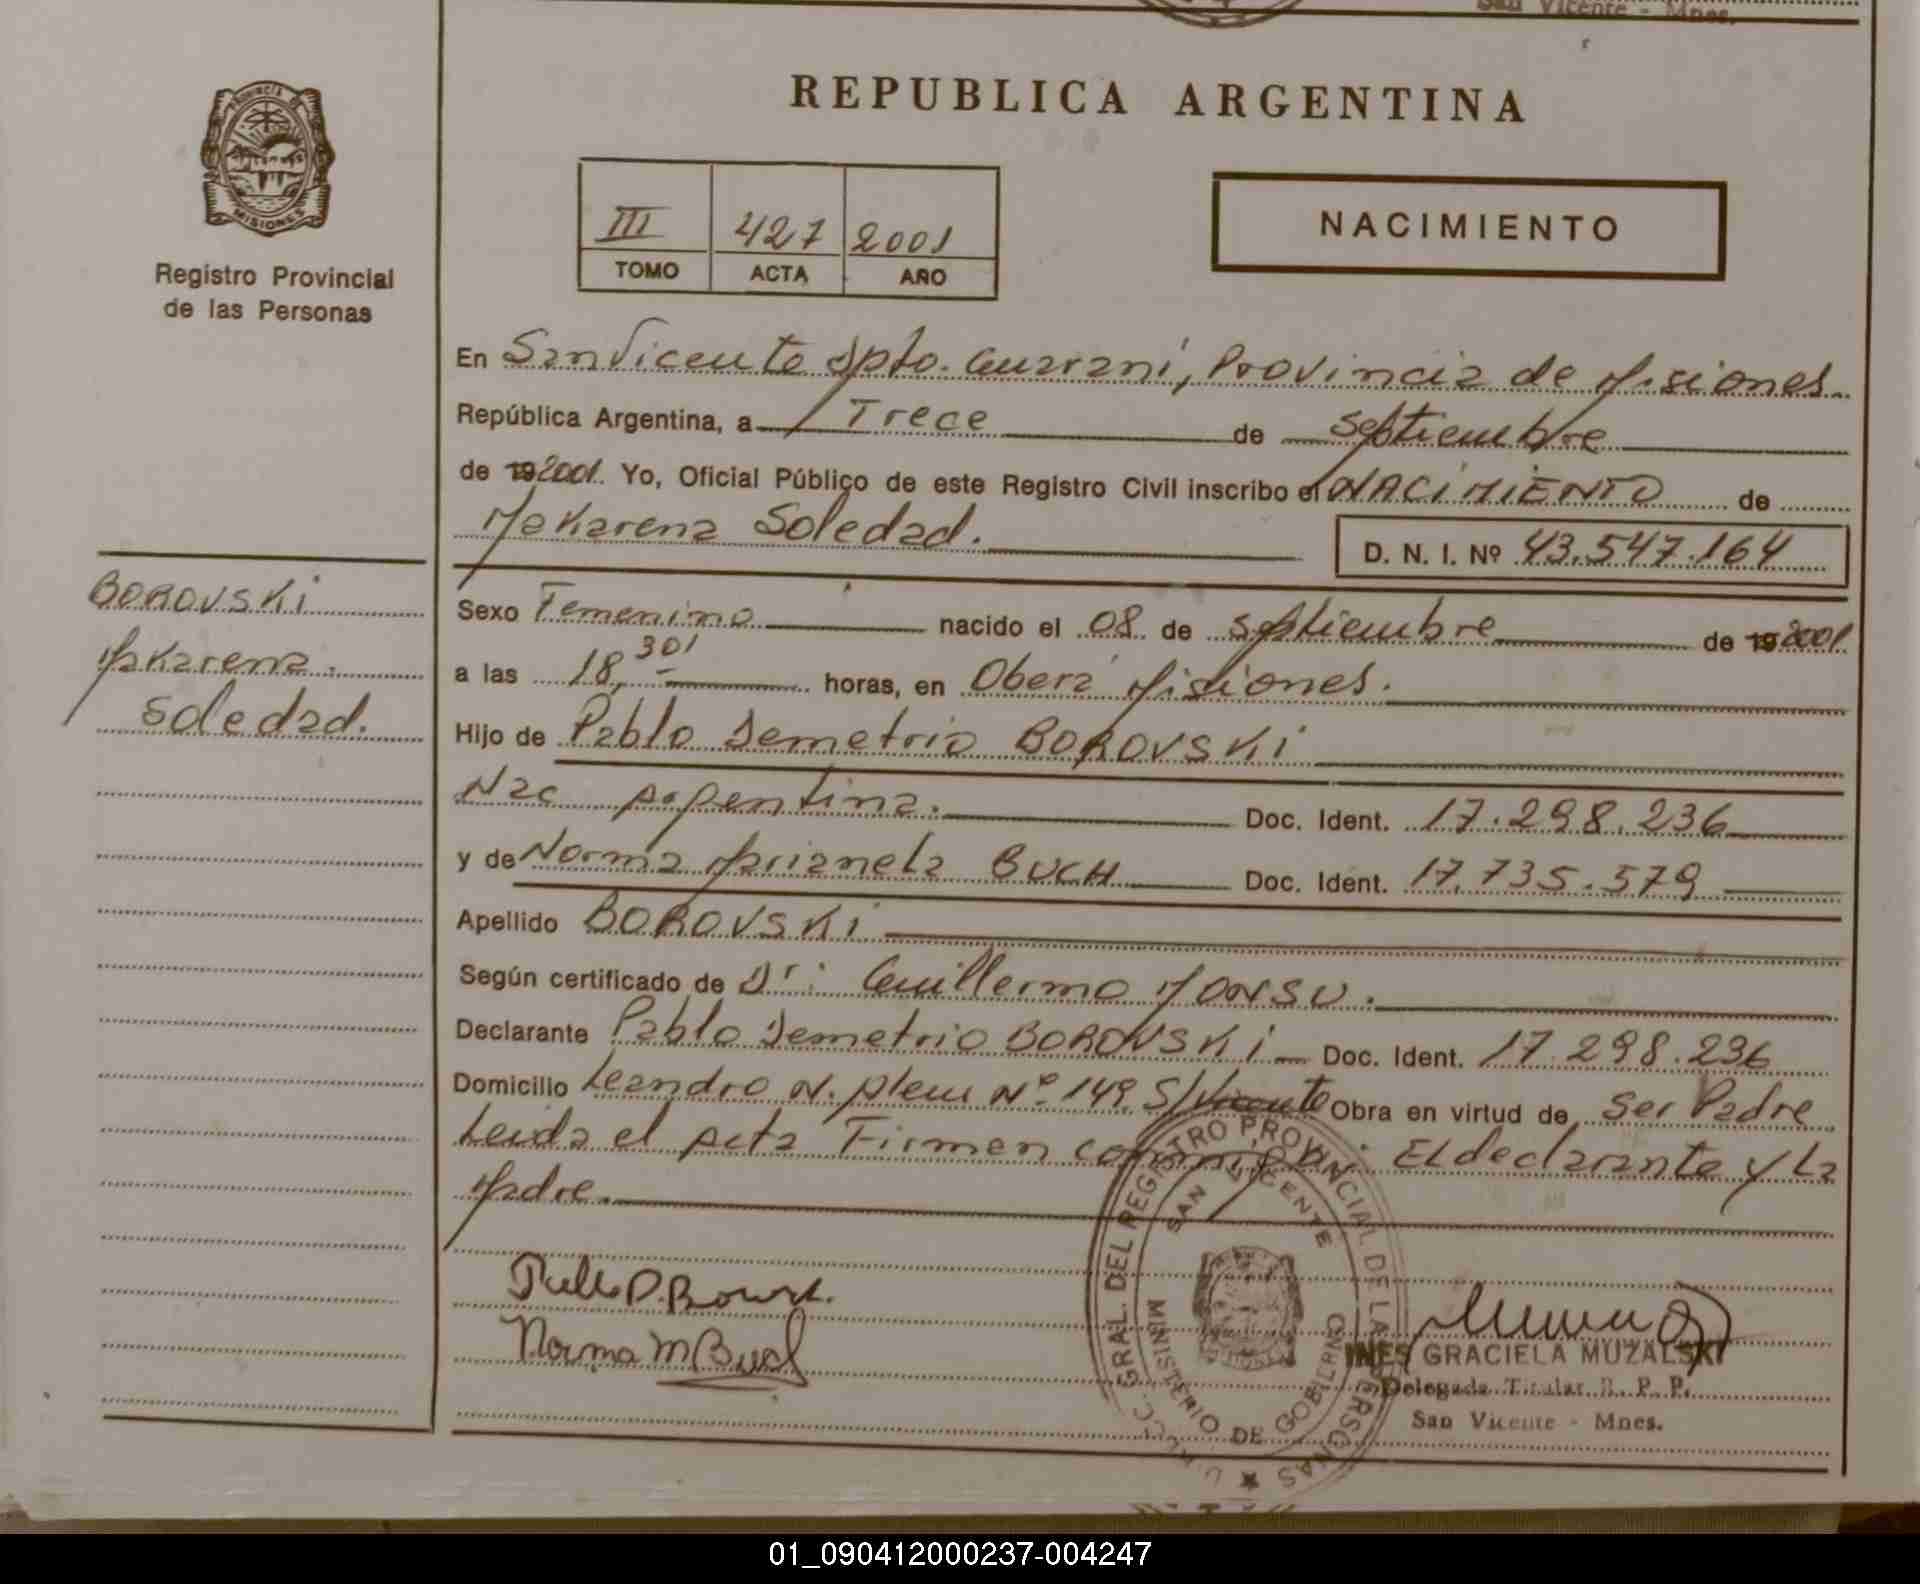 San Vicente - Mnes.
REPUBLICA ARGENTINA
PROVINCIA DE
MISIONES
Registro Provincial
de las Personas
III 427 2001
TOMO ACTA AÑO
NACIMIENTO
En San Vicente Dpto. Guarani, Provincia de Misiones
República Argentina, a Trece de Septiembre
de 19 2001. Yo, Oficial Público de este Registro Civil inscribo el NACIMIENTO de
Makarena Soledad. D. N. I. Nº 43.547.164
BOROVSKi
Makarena
Soledad.
Sexo Femenino nacido el 08 de Septiembre de 19 2001
a las 18,30' horas, en Oberá Misiones.
Hijo de Pablo Demetrio BOROVSKi
Nac Argentina. Doc. Ident. 17.298.236
y de Norma Marianela BUCH Doc. Ident. 17.735.579
Apellido BOROVSKi
Según certificado de Dr: Guillermo MONSU.
Declarante Pablo Demetrio BOROVSKi Doc. Ident. 17.298.236
Domicilio Leandro N. Alem Nº 149 S/Vicente Obra en virtud de Ser Padre
Leida el Acta Firmen conmigo: El declarante y La
Madre.
Norma M Buch
GRAL. DEL REGISTRO PROVINCIAL DE LAS PERSONAS
SAN VICENTE
MINISTERIO DE GOBIERNO
INES GRACIELA MUZALSKI
Delegada Titular R. P. P.
San Vicente - Mnes.
01_090412000237-004247